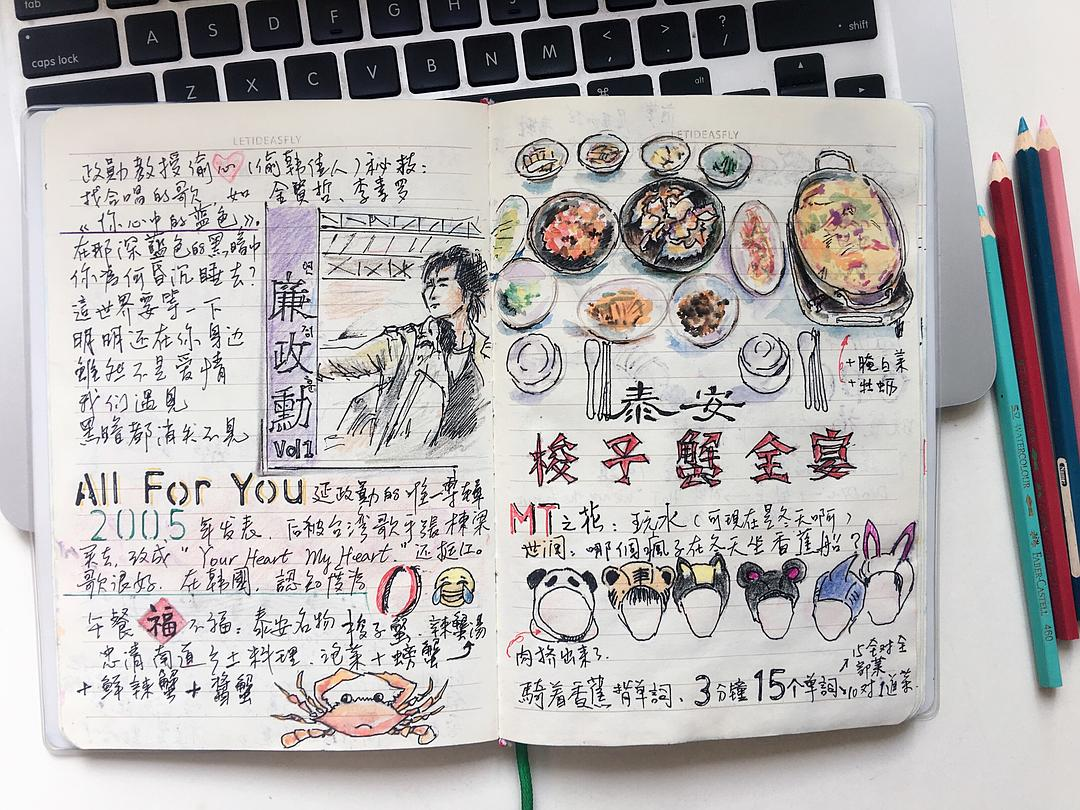 tab
caps lock
A S D F G H J K L
Z X C V B N M < , > . ? /
shift
alt
⌘
LETIDEASFLY
政勤教授偷心(偷韩佳人)秘技:
找合唱的歌,如 金賢哲、李素罗
《你心中的蓝色》。
在那深藍色的黑暗中
你為何昏沉睡去?
這世界要等一下
明明还在你身边
雖然不是爱情
我们遇見
黑暗都消失不見
廉연
政정
勳훈
Vol 1
All For You 延政勤的唯一專輯
2005年发表. 后被台湾歌手張棟梁
买去,改成"Your Heart My Heart"还挺红。
歌很好. 在韩國. 認知度为0
午餐福不福:泰安名物 梭子蟹. 辣蟹湯
忠清南道乡土料理. 泡菜+螃蟹
+鮮辣蟹+醬蟹
LETIDEASFLY
+腌白菜
+牡蛎
泰安
梭子蟹全宴
MT之花:玩水(可現在是冬天啊)
世潤:哪個瘋子在冬天坐香蕉船?
肉挤出来了.
騎着香蕉背单詞、3分鐘15个单詞
15全对全部菜
10对1道菜.
WATERCOLOUR
FABER-CASTELL
460